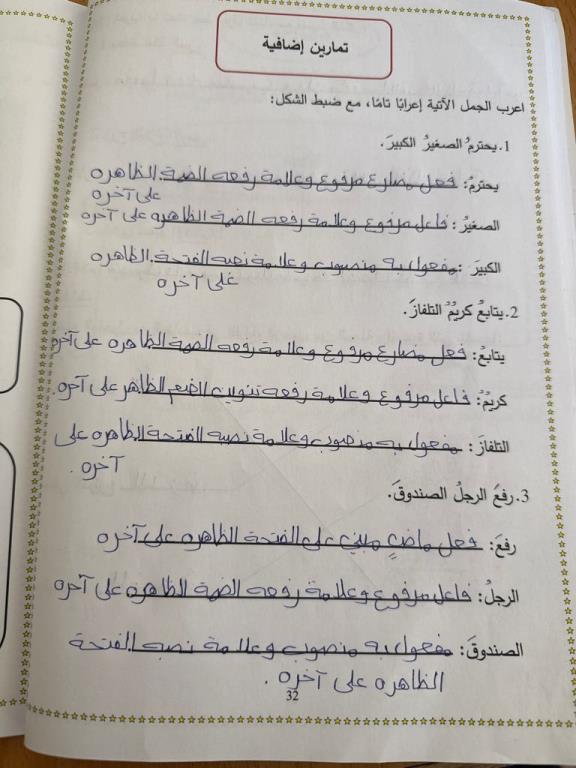 تمارين إضافية
اعرب الجمل الآتية إعرابًا تامًا، مع ضبط الشكل:
1.يحترمُ الصغيرُ الكبيرَ.
يحترمُ: فعل مضارع مرفوع وعلامة رفعه الضمة الظاهره
على آخره
الصغيرُ: فاعل مرفوع وعلامة رفعه الضمة الظاهره على آخره
الكبيرَ: مفعول به منصوب وعلامة نصبه الفتحة الظاهره
على آخره
2.يتابعُ كريمٌ التلفازَ.
يتابعُ: فعل مضارع مرفوع وعلامة رفعه الضمة الظاهره على آخره
كريمٌ: فاعل مرفوع وعلامة رفعه تنوين الضم الظاهر على آخره.
التلفازَ: مفعول به منصوب وعلامة نصبه الفتحة الظاهره على
آخره .
3.رفعَ الرجلُ الصندوقَ.
رفعَ: فعل ماضٍ مبني على الفتحة الظاهره على آخره
الرجلُ: فاعل مرفوع وعلامة رفعه الضمة الظاهره على آخره
الصندوقَ: مفعول به منصوب وعلامة نصبه الفتحة
الظاهره على آخره .
32